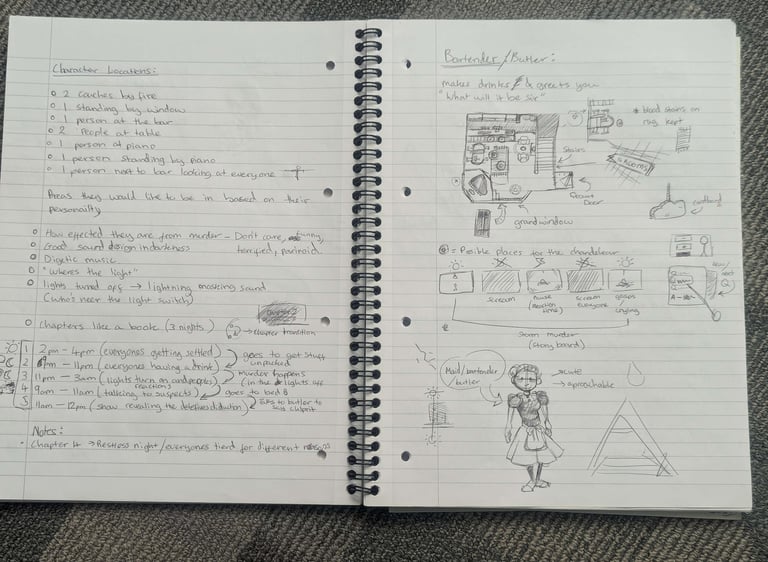 Character Locations:
2 couches by fire
1 standing by window
1 person at the bar
2 People at table
1 person at piano
1 person standing by piano
1 person next to bar looking at everyone
Areas they would like to be in based on their
personality
How effected they are from murder - Don't care, funny,
Good sound design in darkness terrified, parinoid
Digetic music
"Wheres the light"
lights turned off → lightning masking sound
(who's near the light switch)
Chapters like a book (3 nights)
chapter transition
1 2pm - 4pm (everyones getting settled) goes to get stuff
unpacked
2 8pm - 11pm (everyones having a drink)
murder happens
3 11pm - 3am (lights turn on and peoples (in the lights off
reaction)
4 9am - 11am (talking to suspects) goes to bed
5 11am - 12pm (show revealing the detectives diduction) to butler to
culprit
Notes:
Chapter 4 → Restless night/everyones tierd for different reasons
Bartender/Butler:
makes drinks & greets you
"What will it be sir"
* blood stains on
rug kept
Stairs
Front
Door
grand window
= Posible places for the chandelear
scream
pause
(reaction
time)
scream
everyone
gasps
crying
Storm murder
(story board)
Maid/bartender
butler
cute
aproachable